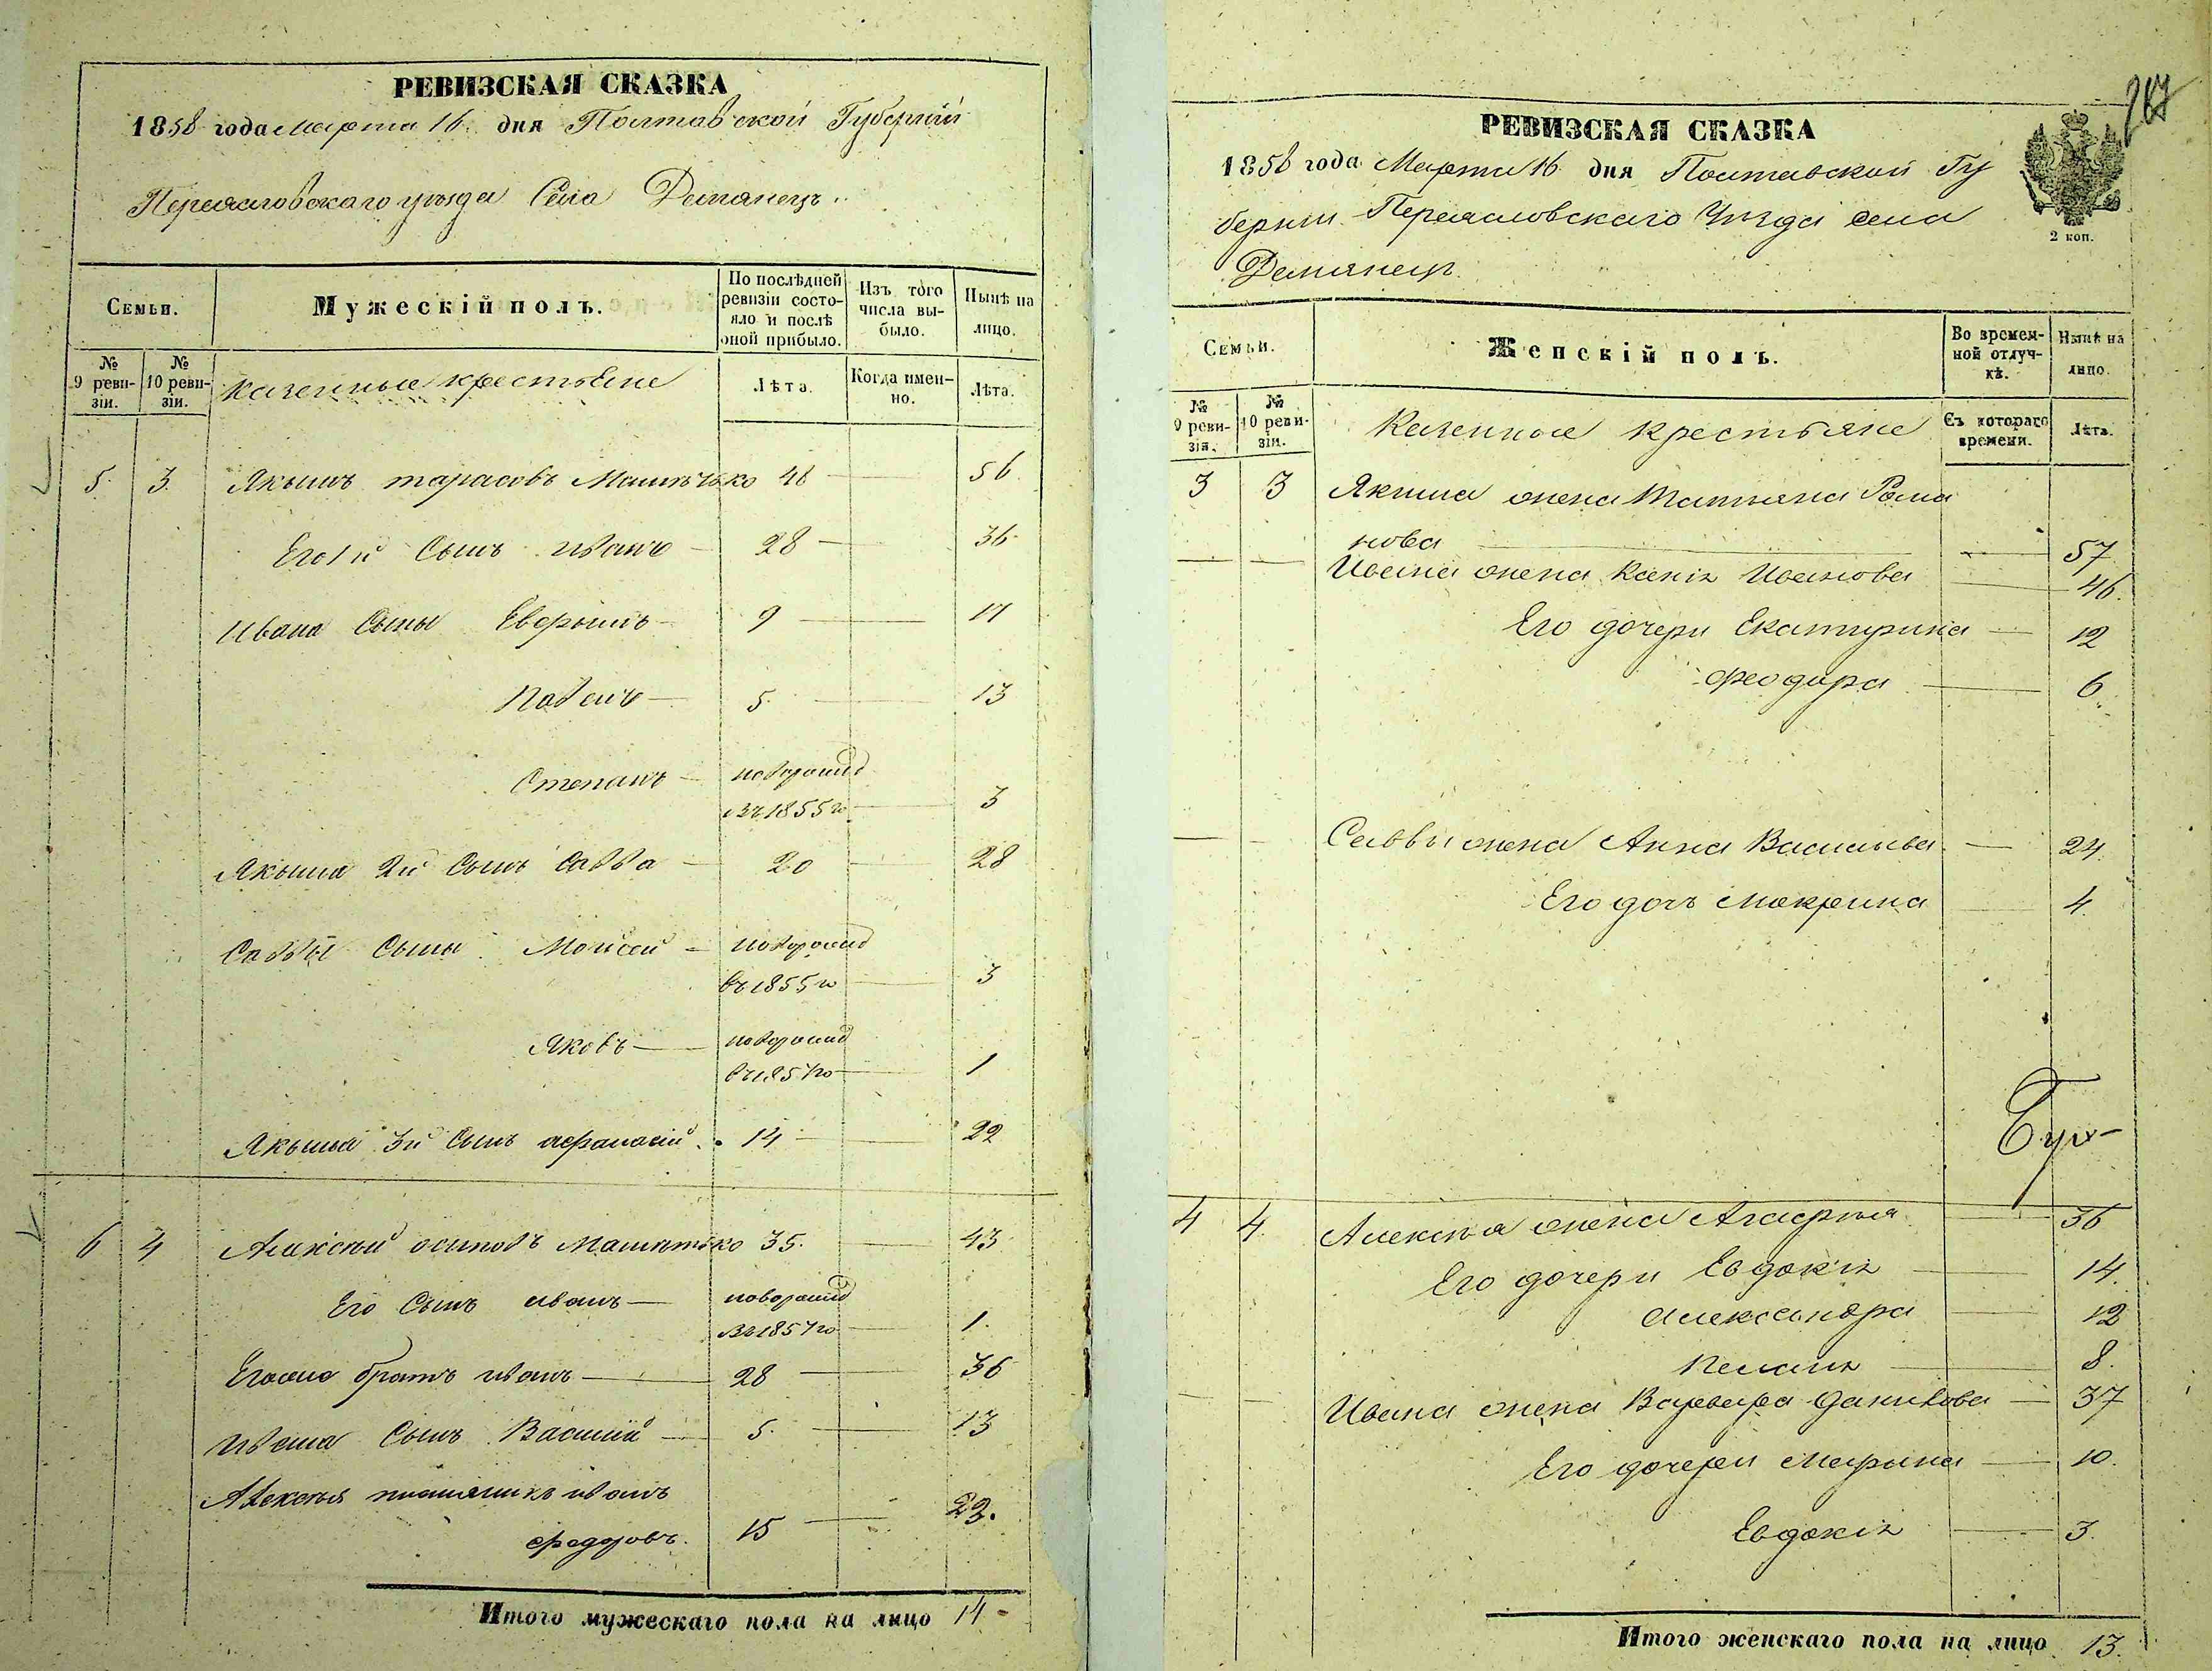 РЕВИЗСКАЯ СКАЗКА
1858 года марта 16 дня Полтавской Губернии
Переяславскаго уезда Села Демянець
Семьи.
Мужескій полъ.
По послѣдней ревизіи состояло и послѣ оной прибыло.
Изъ того числа выбыло.
Нынѣ на лицо.
№ 9 ревизіи.
№ 10 ревизіи.
Казенные крестьяне
Лѣта.
Когда именно.
Лѣта.
5. 3. Якымъ тарасовъ 48 56
Его 1й Сынъ иванъ 28 36
Ивана Сыны 9 17
Павелъ 5 13
Степанъ новорожд
въ 1855 го 3
Якыма 2й Сынъ Савва 20 28
Саввы Сыны Моисей новорожд
въ 1855 го 3
Яковъ новорожд
въ 1857 го 1
Якыма 3й Сынъ афанасій 14 22
6 4 Алексѣй осиповъ 35. 43
Его Сынъ иванъ новорожд
въ 1857 го 1.
братъ иванъ 28 36
Ивана Сынъ Василий 5. 13
Алексѣя племяникъ иванъ
федоровъ. 15 23.
Итого мужескаго пола на лицо 14
267
РЕВИЗСКАЯ СКАЗКА
1858 года Марта 16 дня Полтавской Гу
берни Переяславскаго Уезда села
Демянець
2 коп.
Семьи.
Женскій полъ.
Во временной отлучкѣ.
Нынѣ на лицо.
№ 9 ревизіи.
№ 10 ревизіи.
Казенные крестьяне
Съ котораго времени.
Лѣта.
3 3 Якима жена Татияна Рома
нова 57
Ивана жена Ивановa 46.
Его дочери Екатирина 12
Феодора 6.
Саввы жена Анна Васильева 24.
Его дочь Макрина 4.
4 4. Алексѣя жена Агафия 36
Его дочери Евдокія 14.
Александра 12
8.
Ивана жена Варвара Данилова 37
Его дочери Марина 10.
Евдокія 3.
Итого женскаго пола на лицо 13.